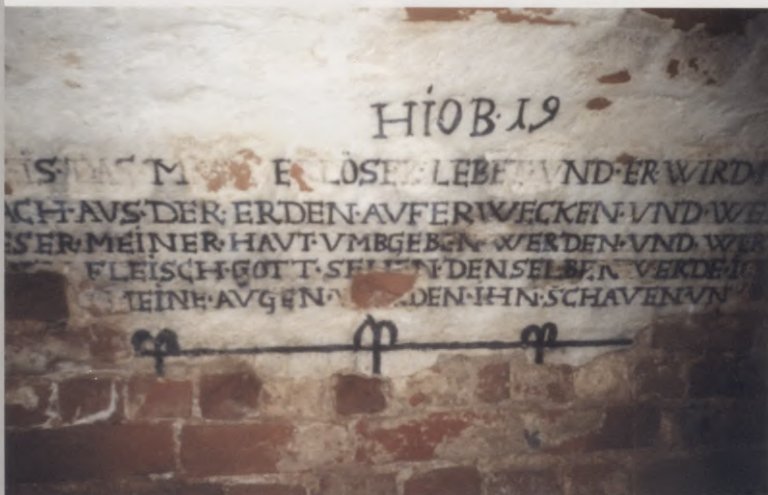 HIOB·19
LÖSER LEBET VND·ER·WIRD
AVS·DER·ERDEN·AVFERWECKEN·VND·WE
SER·MEINER·HAVT·VMBGEBEN·WERDEN·VND·WER
FLEISCH·GOTT·SEHEN·DENSELBEN WERDE·I
MEINE·AVGEN·W DEN·IHN·SCHAVEN·VN